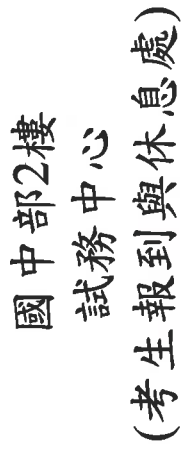 國中部2樓
試務中心
(考生報到與休息處)